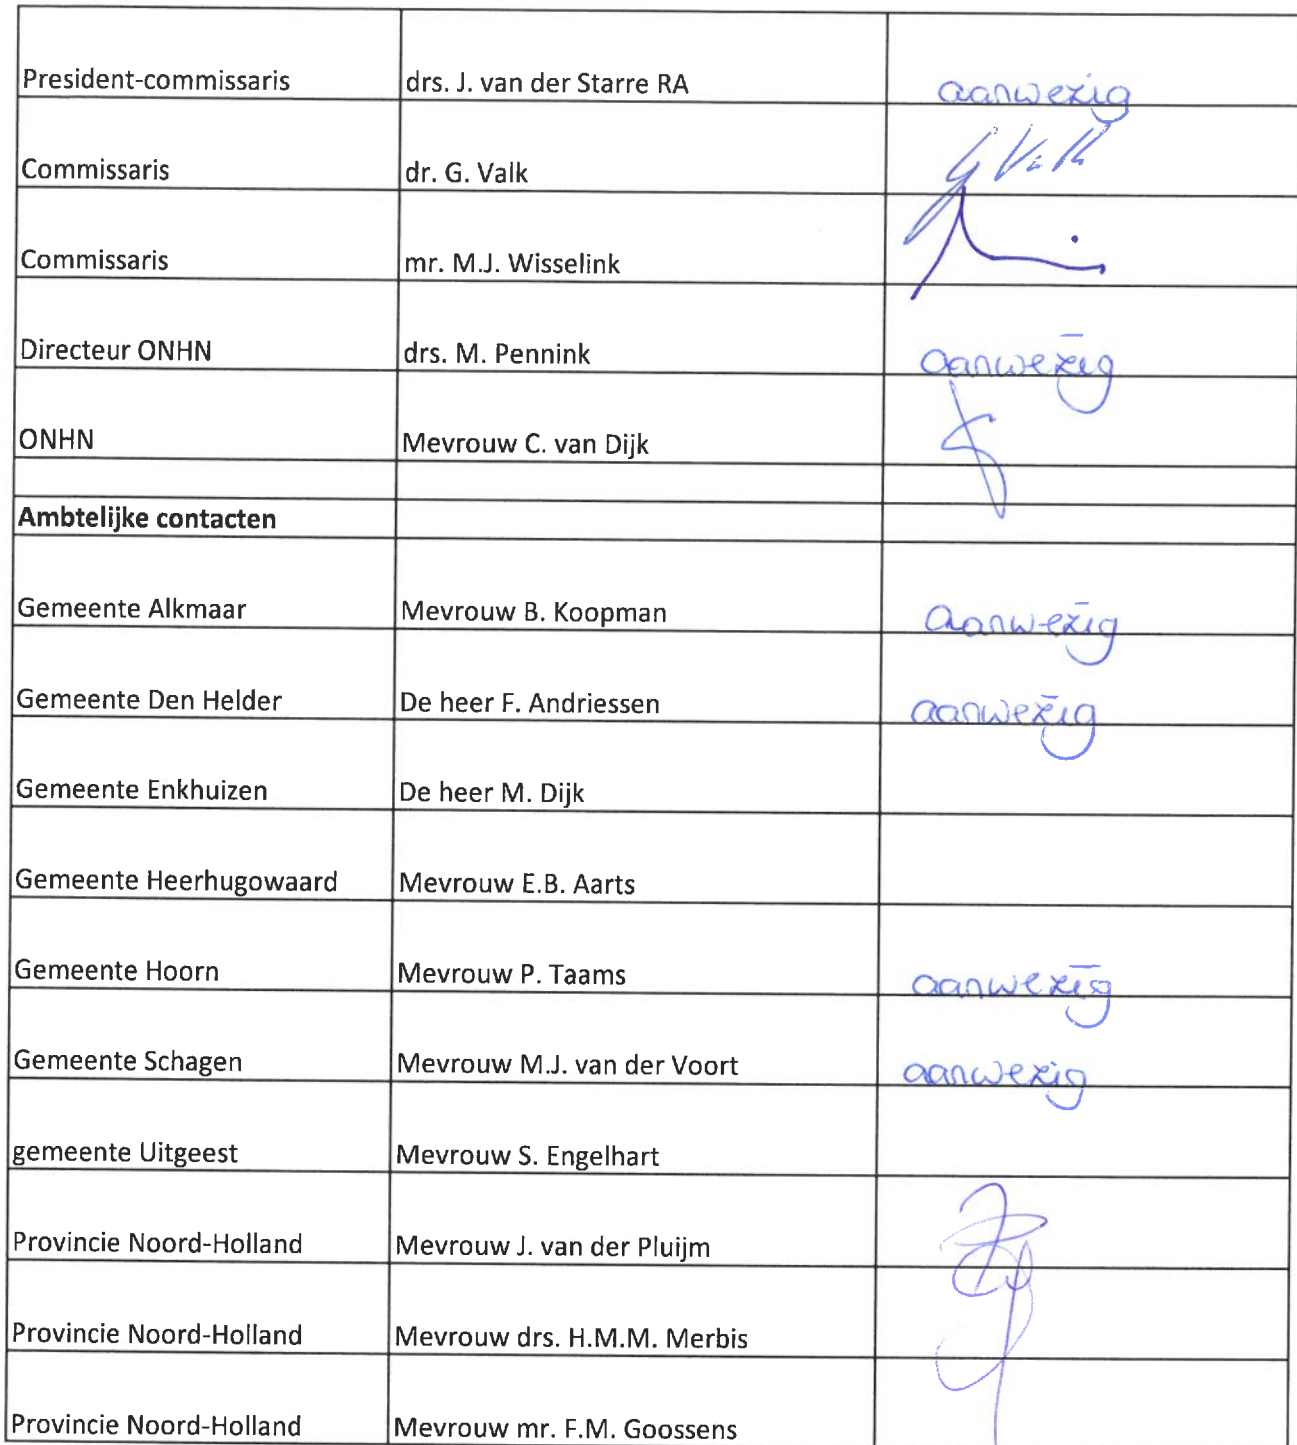 President-commissaris drs. J. van der Starre RA aanwezig
Commissaris dr. G. Valk G Valk
Commissaris mr. M.J. Wisselink
Directeur ONHN drs. M. Pennink aanwezig
ONHN Mevrouw C. van Dijk
Ambtelijke contacten
Gemeente Alkmaar Mevrouw B. Koopman aanwezig
Gemeente Den Helder De heer F. Andriessen aanwezig
Gemeente Enkhuizen De heer M. Dijk
Gemeente Heerhugowaard Mevrouw E.B. Aarts
Gemeente Hoorn Mevrouw P. Taams aanwezig
Gemeente Schagen Mevrouw M.J. van der Voort aanwezig
gemeente Uitgeest Mevrouw S. Engelhart
Provincie Noord-Holland Mevrouw J. van der Pluijm
Provincie Noord-Holland Mevrouw drs. H.M.M. Merbis
Provincie Noord-Holland Mevrouw mr. F.M. Goossens